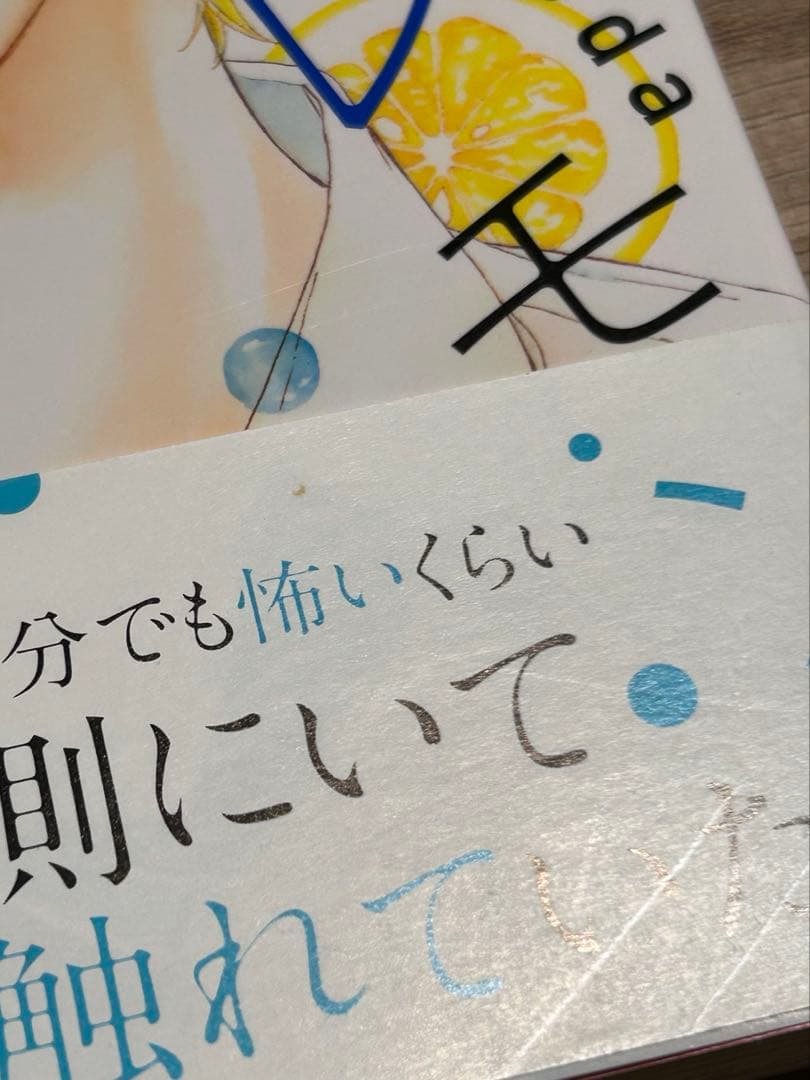 da
レモ
分でも怖いくらい
側にいて
触れていた